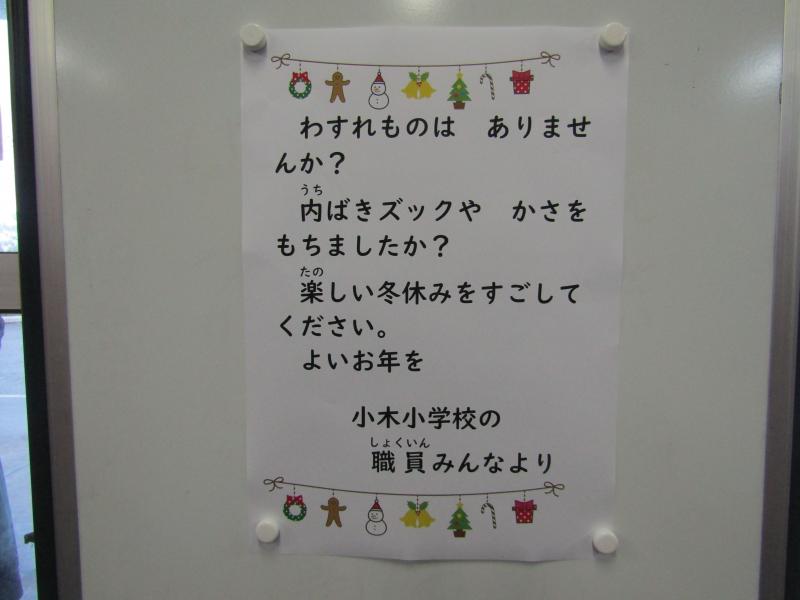 わすれものは　ありませ
んか？
うち
内ばきズックや　かさを
もちましたか？
たの
楽しい冬休みをすごして
ください。
よいお年を
小木小学校の
しょくいん
職員みんなより